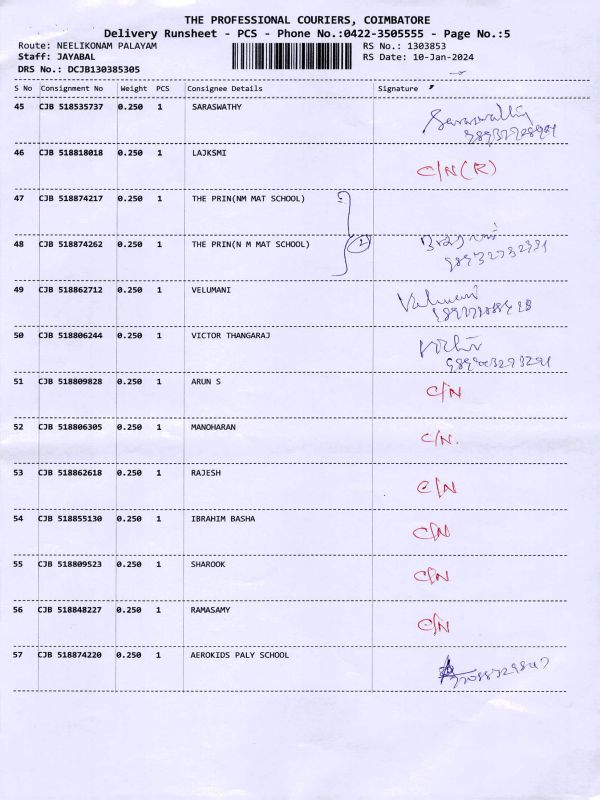 THE PROFESSIONAL COURIERS, COIMBATORE
Delivery Runsheet - PCS - Phone No.:0422-3505555 - Page No.:5
Route: NEELIKONAM PALAYAM RS No.: 1303853
Staff: JAYABAL RS Date: 10-Jan-2024
DRS No.: DCJB130385305
S No Consignment No Weight PCS Consignee Details Signature
45 CJB 518535737 0.250 1 SARASWATHY Saraswathy
46 CJB 518818018 0.250 1 LAJKSMI C/N(R)
47 CJB 518874217 0.250 1 THE PRIN(NM MAT SCHOOL)
48 CJB 518874262 0.250 1 THE PRIN(N M MAT SCHOOL) 2
49 CJB 518862712 0.250 1 VELUMANI Velumani
50 CJB 518806244 0.250 1 VICTOR THANGARAJ
51 CJB 518809828 0.250 1 ARUN S C/N
52 CJB 518806305 0.250 1 MANOHARAN C/N.
53 CJB 518862618 0.250 1 RAJESH C/N
54 CJB 518855130 0.250 1 IBRAHIM BASHA C/N
55 CJB 518809523 0.250 1 SHAROOK C/N
56 CJB 518848227 0.250 1 RAMASAMY C/N
57 CJB 518874220 0.250 1 AEROKIDS PALY SCHOOL